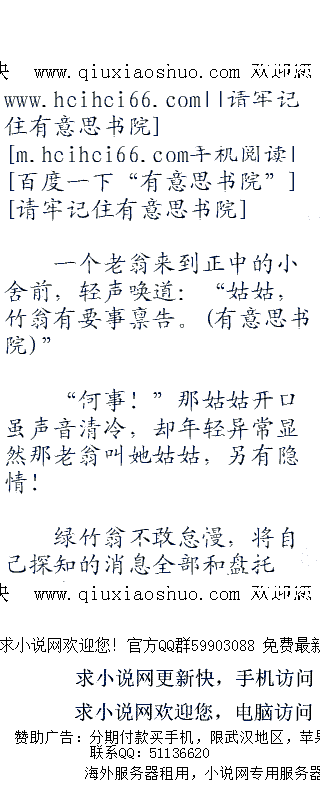 快 www.qiuxiaoshuo.com 欢迎您
www.hcihci66.com||请牢记
住有意思书院]
[m.hcihci66.com手机阅读|
[百度一下“有意思书院”]
[请牢记住有意思书院]
一个老翁来到正中的小
舍前，轻声唤道：“姑姑，
竹翁有要事禀告。(有意思书
院)”
“何事！”那姑姑开口
虽声音清冷，却年轻异常显
然那老翁叫她姑姑，另有隐
情！
绿竹翁不敢怠慢，将自
己探知的消息全部和盘托
快 www.qiuxiaoshuo.com 欢迎您
求小说网欢迎您！官方QQ群59903088 免费最新
求小说网更新快，手机访问
求小说网欢迎您，电脑访问
赞助广告：分期付款买手机，限武汉地区，苹果
联系QQ：51136620
海外服务器租用，小说网专用服务器